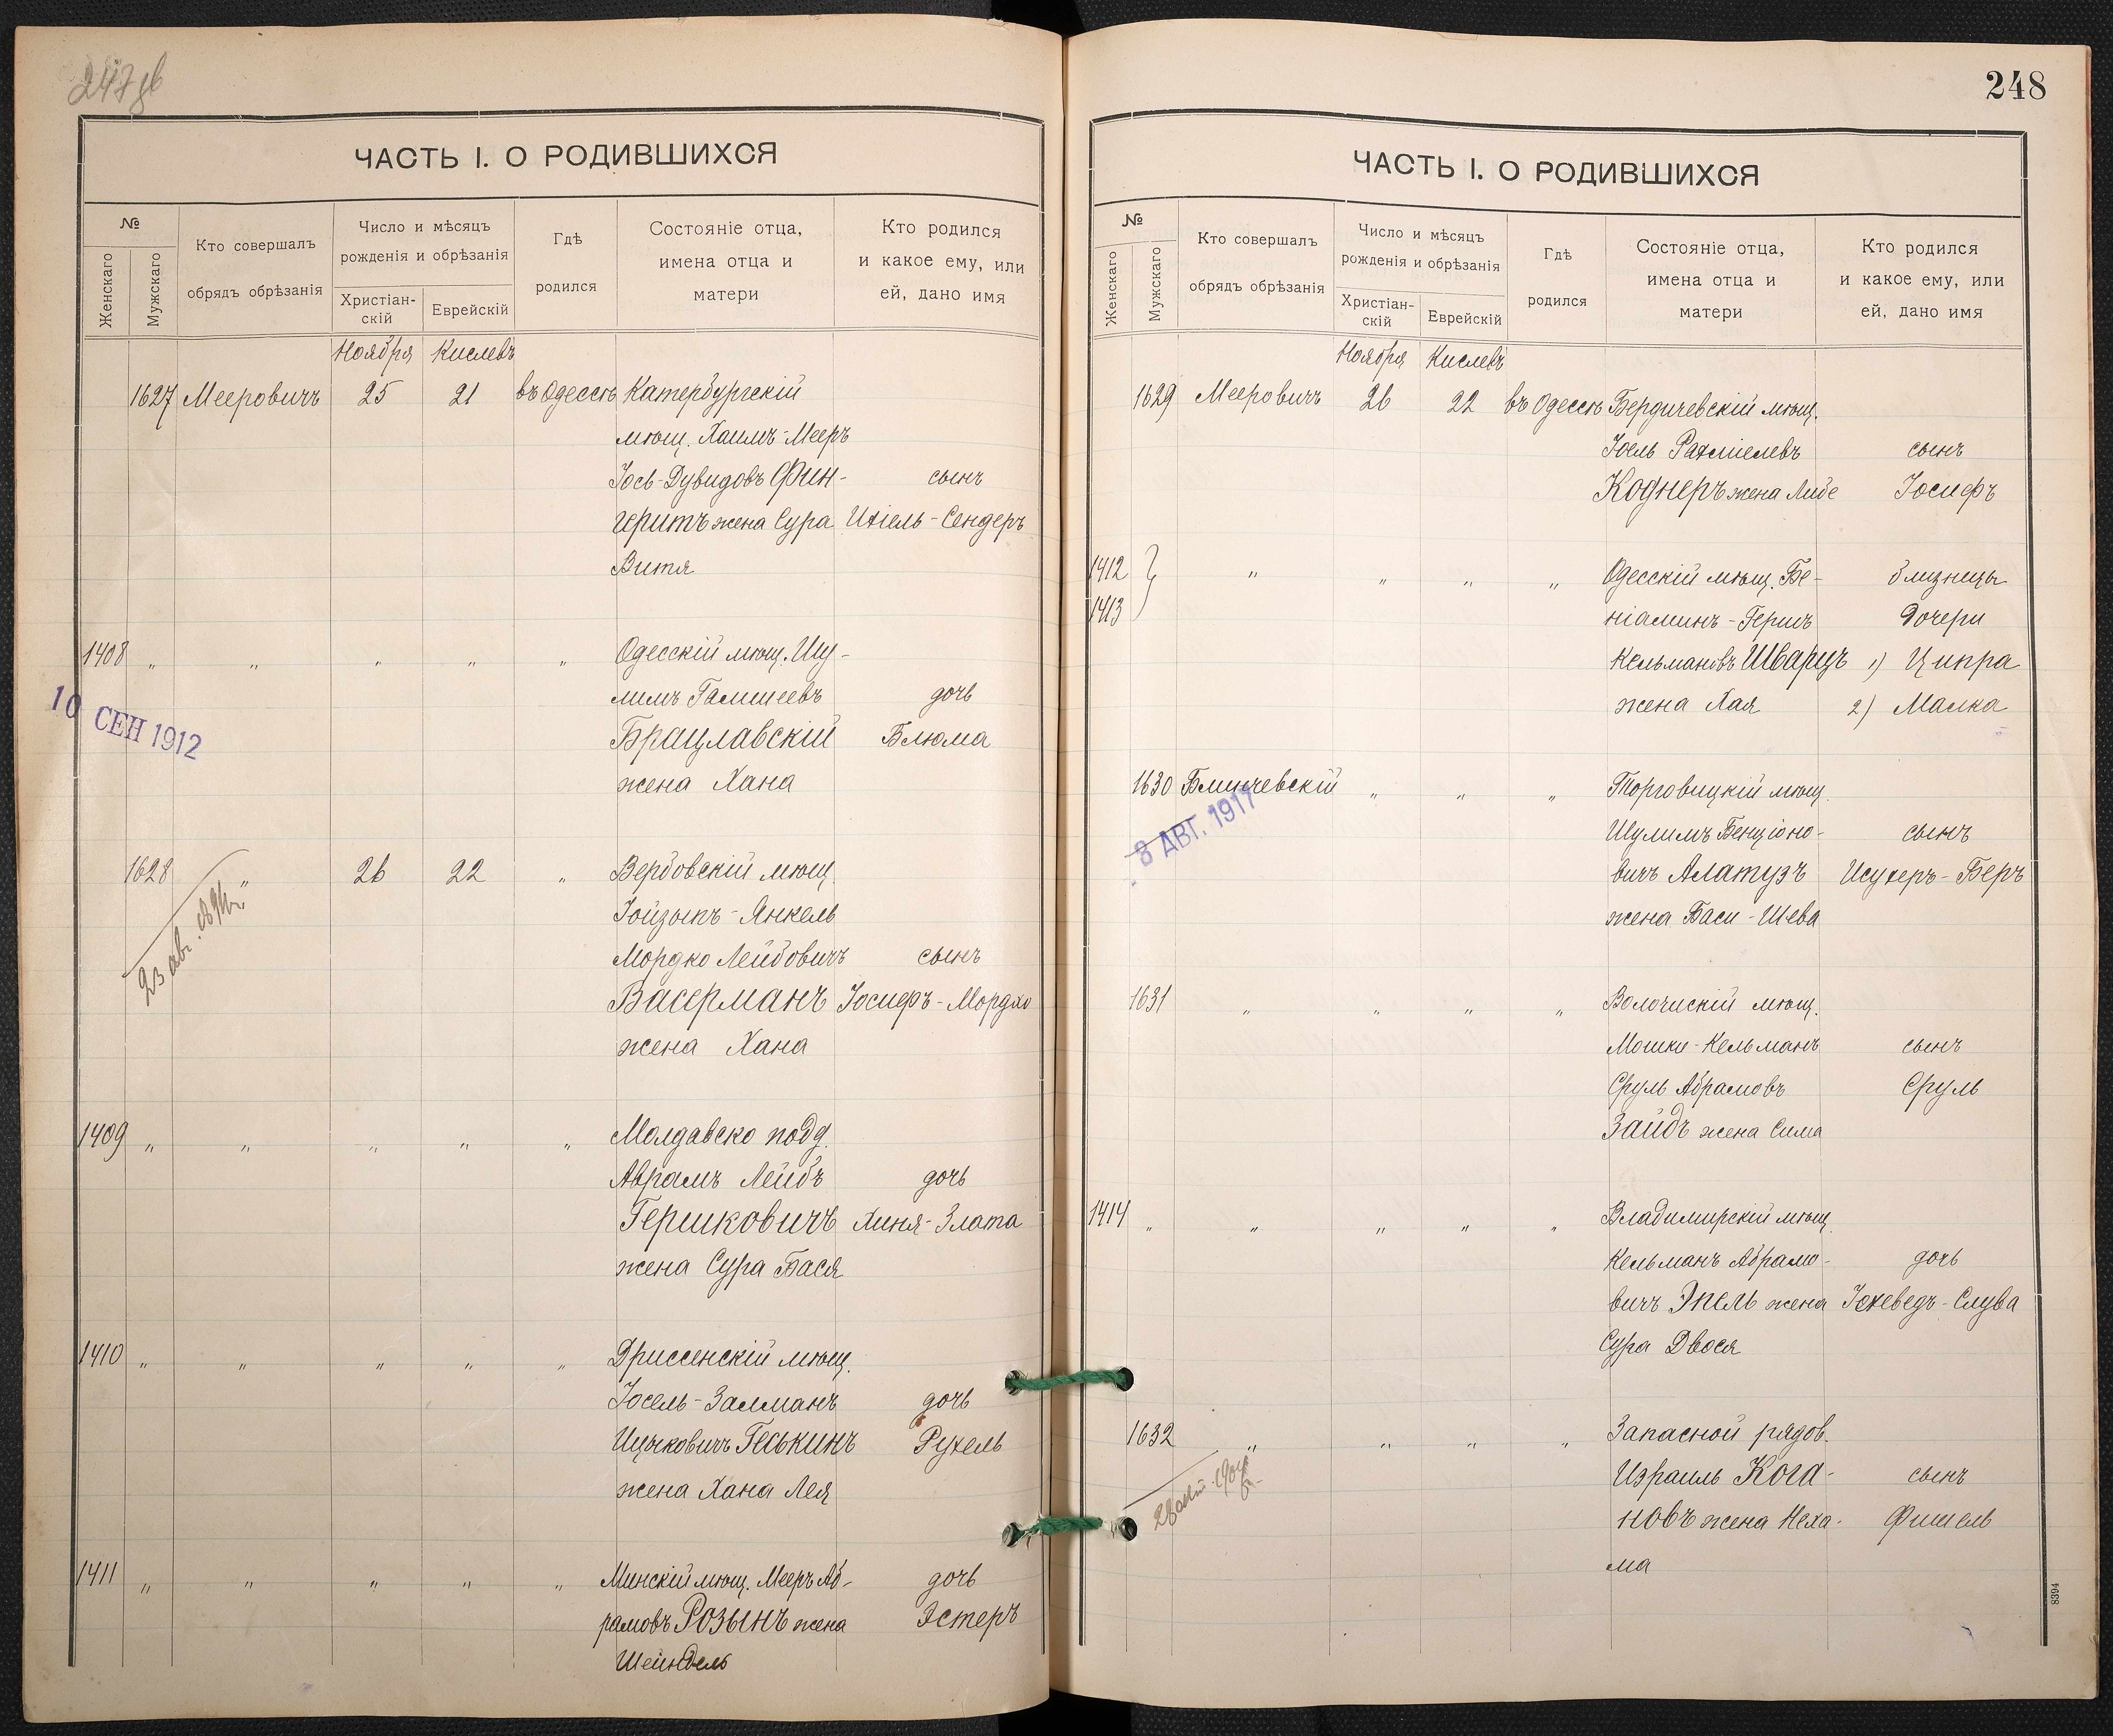 247 об
ЧАСТЬ I. О РОДИВШИХСЯ
№
Женскаго
Мужскаго
Кто совершалъ
обрядъ обрѣзанія
Число и мѣсяцъ
рожденія и обрѣзанія
Христіан-
скій
Еврейскій
Гдѣ
родился
Состояніе отца,
имена отца и
матери
Кто родился
и какое ему, или
ей, дано имя
Ноября Кислевъ
1627 Мееровичъ 25 21 въ Одессѣ Катербургскій
мѣщ. Хаимъ-Мееръ
Іось-Дувидовъ Фин- сынъ
геритъ жена Сура Ихіель-Сендеръ
Витя
1408 " " " " " Одесскій мѣщ. Шу-
лимъ Гамшеевъ дочь
10 СЕН 1912
Брацлавскій Блюма
жена Хана
1628 " 26 22 " Вербовскій мѣщ.
Іойзыпъ-Янкель
23 авг.
Мордко Лейбовичъ сынъ
Васерманъ Іосифъ-Мордко
жена Хана
1409 " " " " " Молдавско подд.
Аврамъ Лейбъ дочь
Гершковичъ Хиня-Злата
жена Сура Бася
1410 " " " " " Дриссенскій мѣщ.
Іосель-Залманъ дочь
Ицыковичъ Геськинъ Рухель
жена Хана Лея
1411 " " " " " Минскій мѣщ. Мееръ Аб- дочь
рамовъ Розынъ жена Эстеръ
Шейндель
248
ЧАСТЬ I. О РОДИВШИХСЯ
№
Женскаго
Мужскаго
Кто совершалъ
обрядъ обрѣзанія
Число и мѣсяцъ
рожденія и обрѣзанія
Христіан-
скій
Еврейскій
Гдѣ
родился
Состояніе отца,
имена отца и
матери
Кто родился
и какое ему, или
ей, дано имя
Ноября Кислевъ
1629 Мееровичъ 26 22 въ Одессѣ Бердичевскій мѣщ.
Іоель Рахміелевъ сынъ
Коднеръ жена Либе Іосифъ
1412 } " " " " Одесскій мѣщ. Бе- близницы
1413 ніаминъ-Гершъ Дочери
Кельмановъ Шварцъ 1) Ципра
жена Хая 2) Малка
1630 Блинчевскій " " " Торговицкій мѣщ.
8 АВГ. 1917
Шулимъ Бенціоно- сынъ
вичъ Алатузъ Исухеръ-Беръ
жена Баси-Шева
1631 " " " " Волочискій мѣщ.
Мошки-Кельманъ сынъ
Сруль Абрамовъ Сруль
Зайдъ жена Сима
1414 " " " " " Владимирскій мѣщ.
Кельманъ Абрамо- дочь
вичъ Эпель жена Іохеведъ-Слува
Сура Двося
1632 " " " " Запасной рядов.
Израиль Кога- сынъ
новъ жена Неха- Фишель
ма
8394